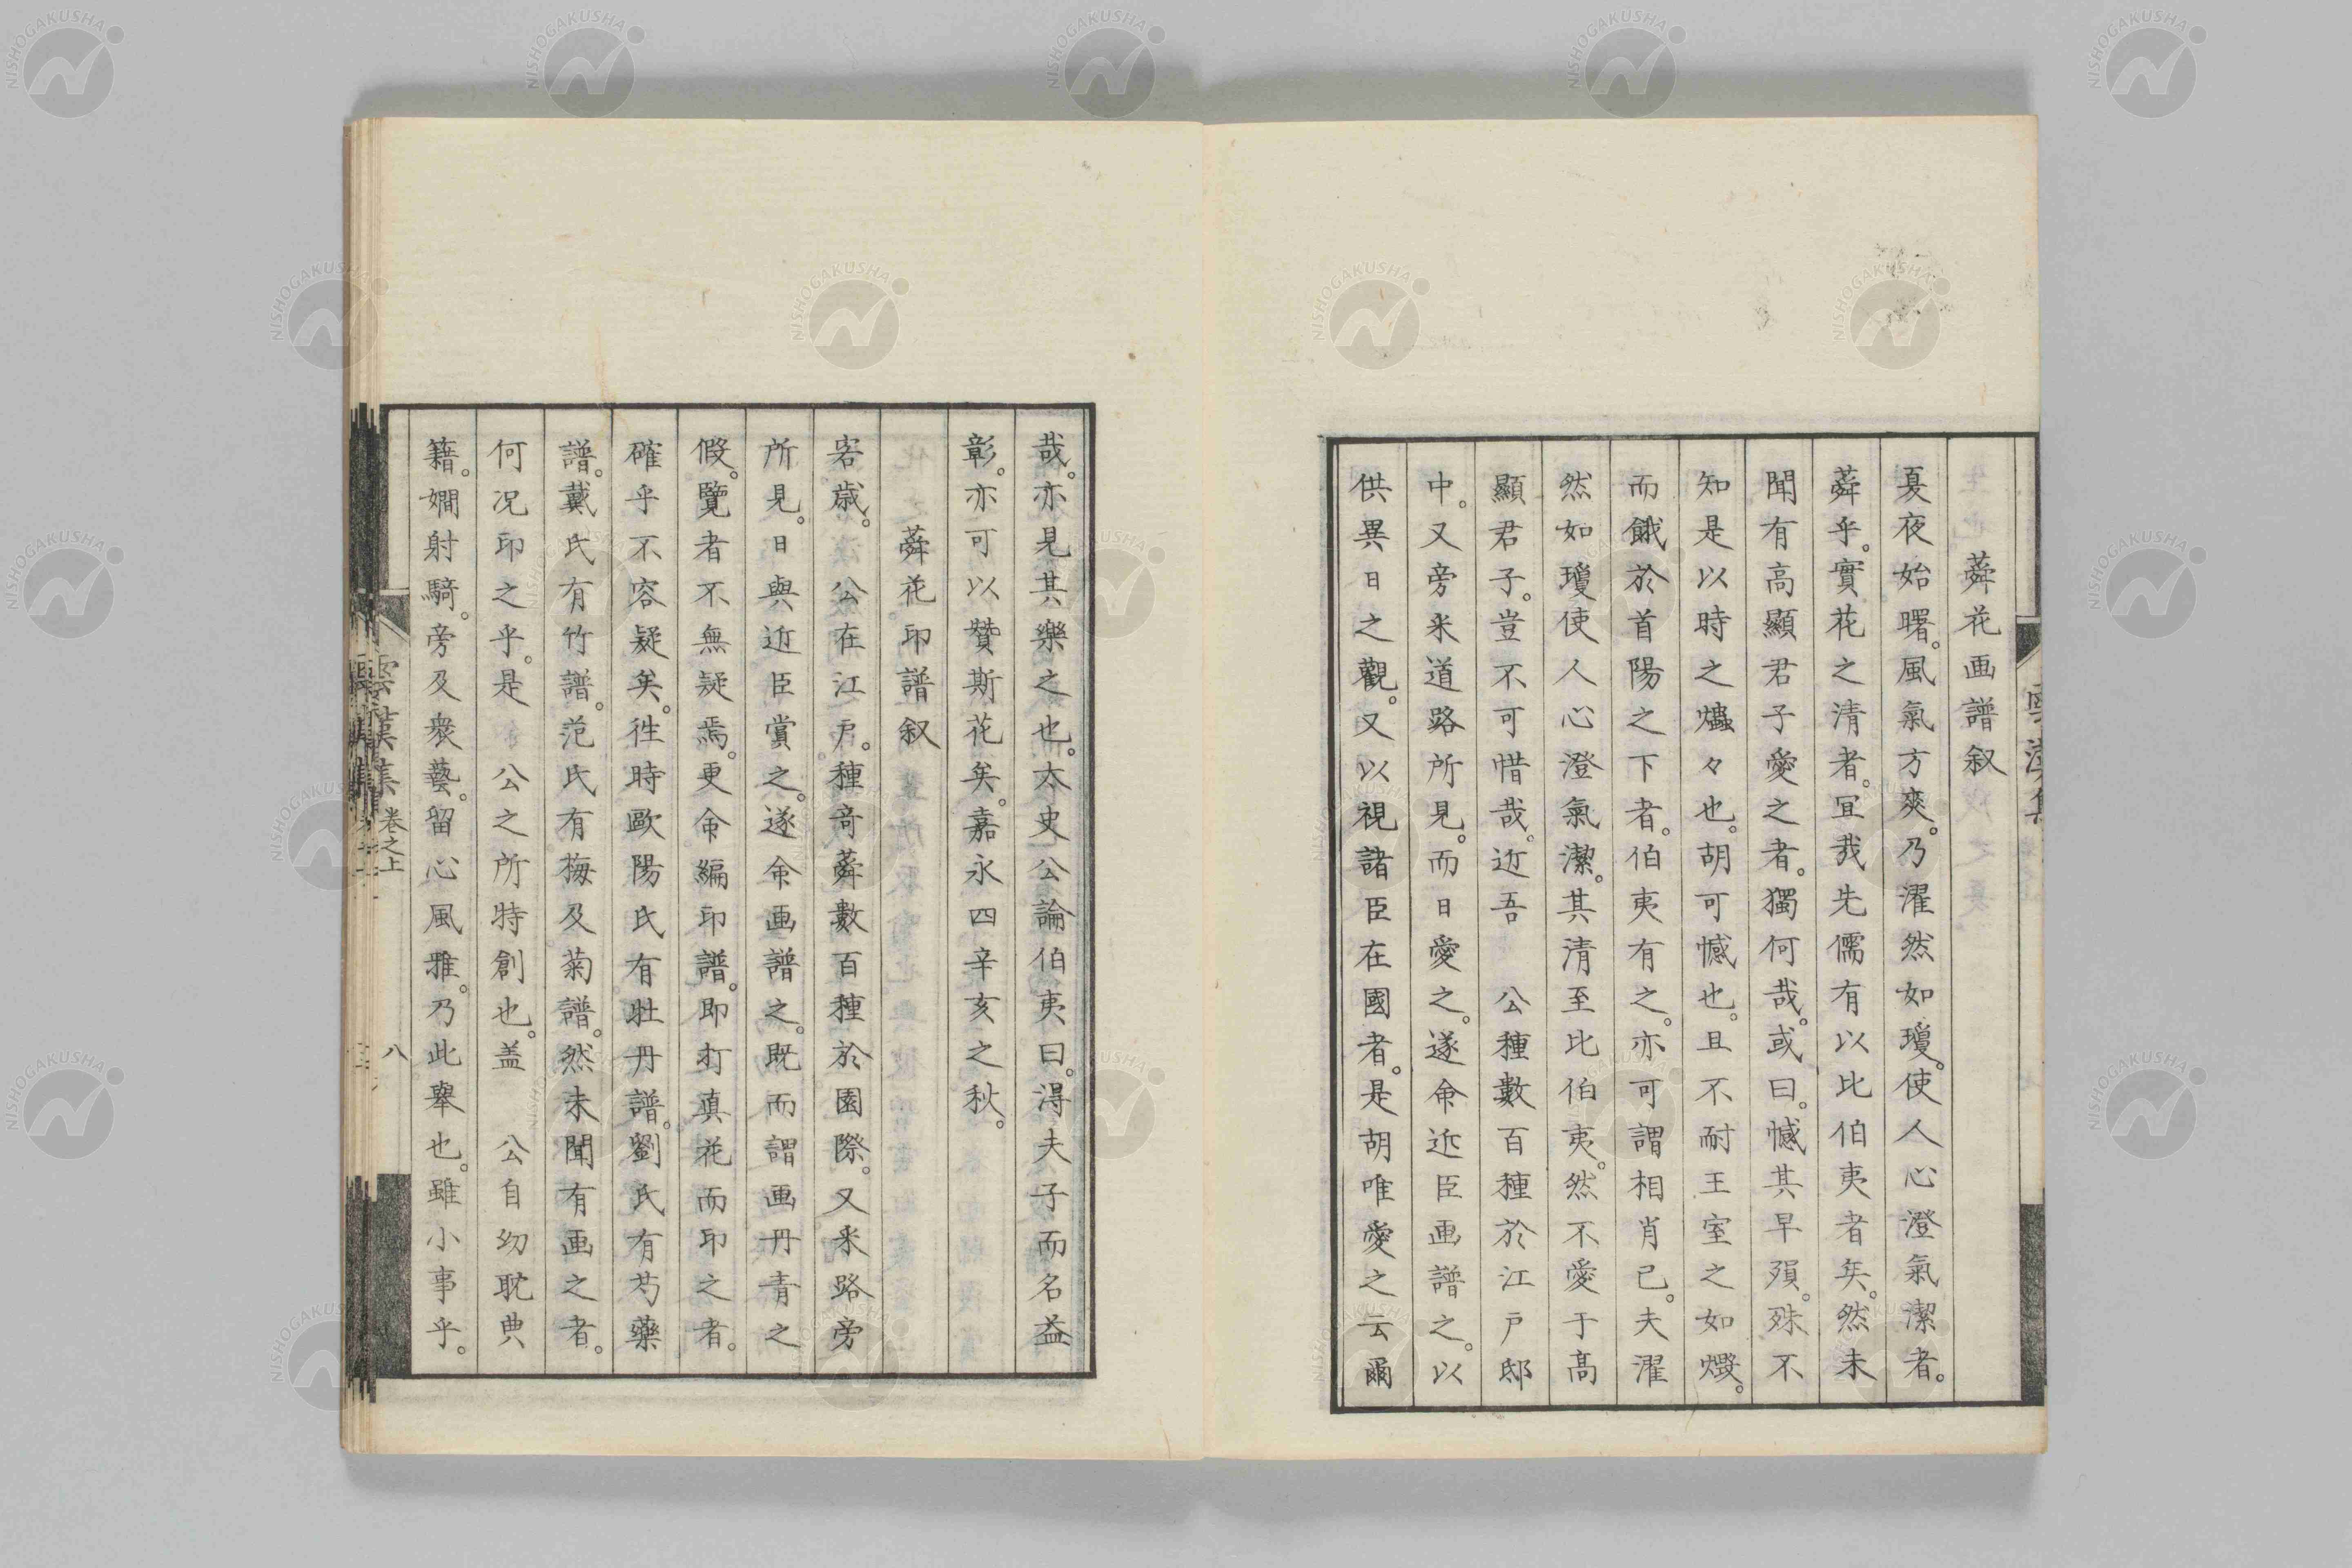 蕣花画譜叙
夏夜始曙。風氣方爽。乃濯然如瓊。使人心澄氣潔者。
蕣乎。實花之清者。宜哉先儒有以比伯夷者矣。然未
聞有高顯君子愛之者。獨何哉。或曰。憾其早殞。殊不
知是以時之蠱々也。胡可憾也。且不耐王室之如燬。
而餓於首陽之下者。伯夷有之。亦可謂相肖已。夫濯
然如瓊使人心澄氣潔。其清至比伯夷。然不愛于高
顯君子。豈不可惜哉。近吾 公種數百種於江戸邸
中。又旁采道路所見。而日愛之。遂命近臣画譜之。以
供異日之觀。又以視諸臣在國者。是胡唯愛之云爾
哉。亦見其樂之也。太史公論伯夷曰。得夫子而名益
彰。亦可以贊斯花矣。嘉永四辛亥之秋。
蕣花印譜叙
客歳。 公在江戸。種奇蕣數百種於園際。又采路旁
所見。日與近臣賞之。遂命画譜之。既而謂画丹青之
假。覽者不無疑焉。更命編印譜。即打真花而印之者。
確乎不容疑矣。徃時歐陽氏有牡丹譜。劉氏有芍藥
譜。戴氏有竹譜。范氏有梅及菊譜。然未聞有画之者。
何况印之乎。是 公之所特創也。盖 公自幼耽典
籍。嫺射騎。旁及衆藝。留心風雅。乃此擧也。雖小事乎。
雲漢集 卷之上
八
NISHOGAKUSHA